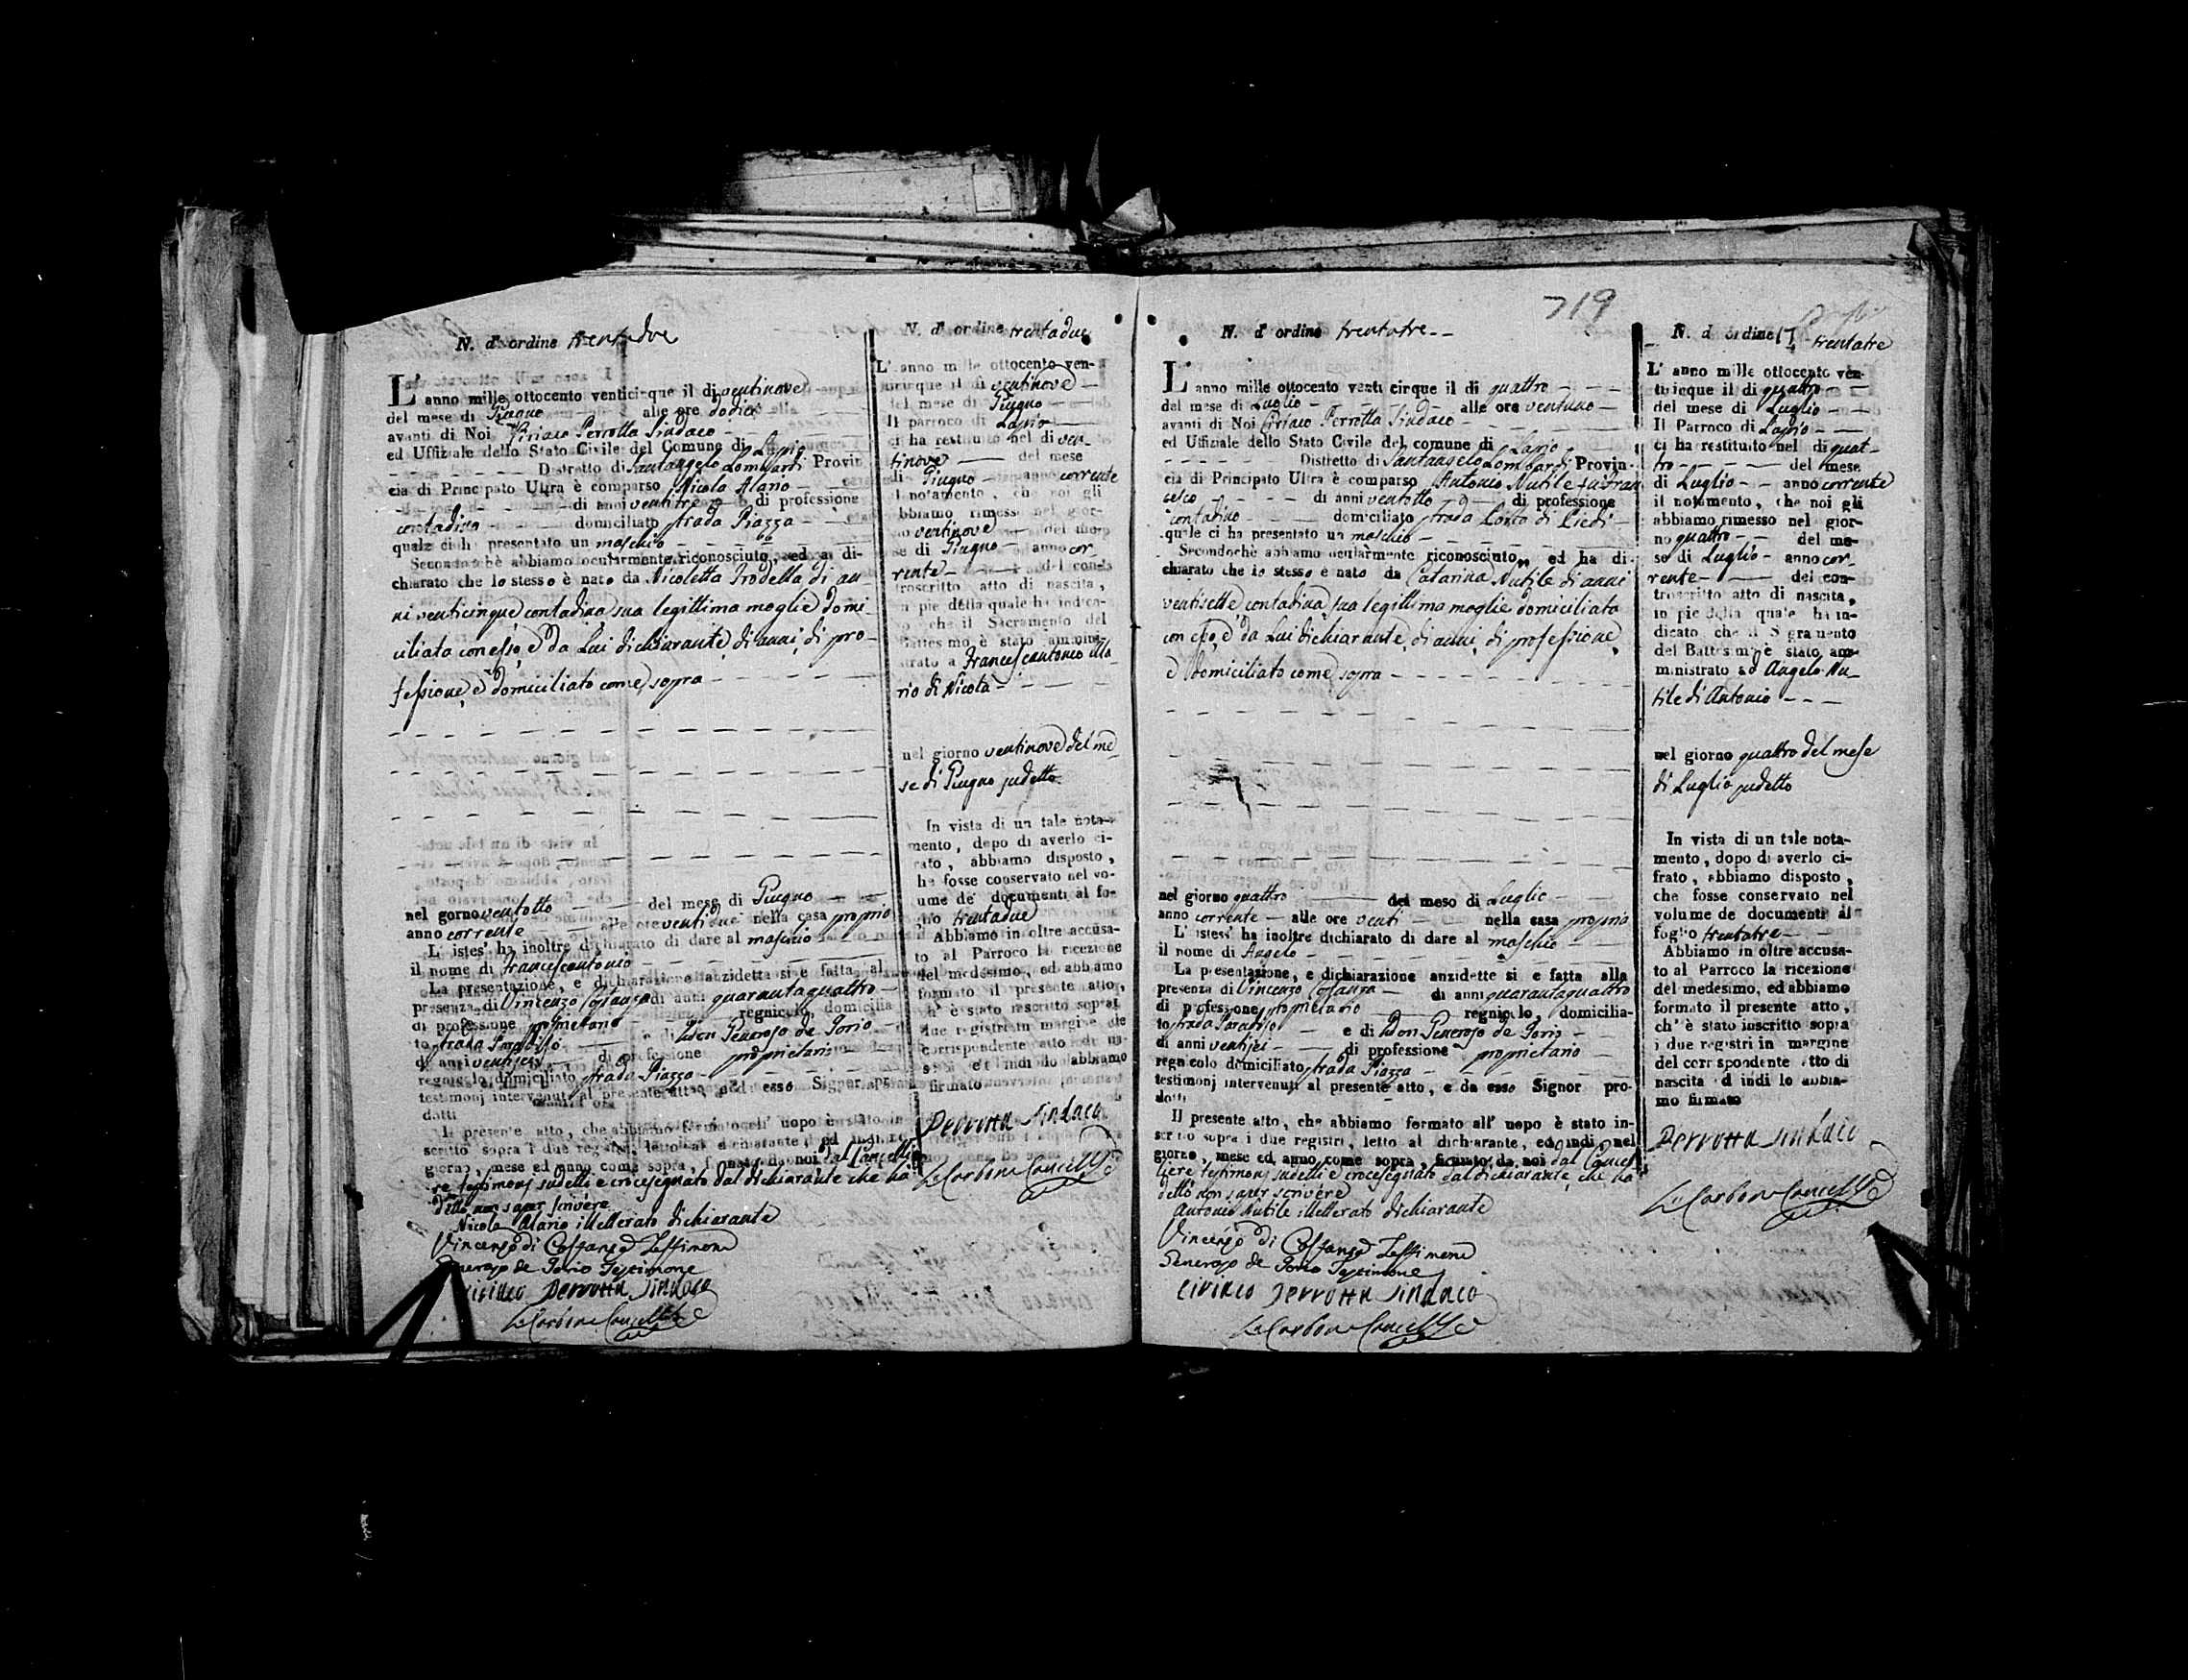 N. d'ordine trentadue
L'anno mille ottocento venticinque il di ventinove
del mese di Giugno alle ore dodici
avanti di Noi Ciriaco Perrotta Sindaco
ed Uffiziale dello Stato Civile del Comune di Lapio
Distretto di Santangelo Lombardi Provin
cia di Principato Ultra è comparso Nicola Alario
di anni ventitre di professione
contadino domiciliato strada Piazza
quale ci ha presentato un maschio
Secondochè abbiamo ocularmente riconosciuto, ed a di-
chiarato che lo stesso è nato da Nicoletta Trodella di an
ni venticinque contadina sua legittima moglie domi
ciliata con esso, e da Lui dichiarante di anni, di pro-
fessione, e domiciliato come sopra
nel gorno ventotto del mese di Giugno
anno corrente alle ore venti due nella casa propria
L'istes' ha inoltre dichiarato di dare al maschio
il nome di Francescantonio
La presentazione, e dichiarazione anzidetta si e fatta al
presenza di Vincenzo Costanza di anni quarantaquattro
di professione proprietario regnicolo, domicilia
to strada Paradiso e di Don Generoso de Iorio
di anni ventisei di professione proprietario
regnicolo domiciliato strada Piazza
testimonj intervenuti al presente atto, e da esso Signor pro
dotti
Il presente atto, che abbiamo formato all' uopo è stato in
scritto sopra i due registri, letto al dichiarante, ed indi nel
giorno, mese ed anno come sopra, firmato da noi dal Cancellie
re testimonj sudetti e crocesegnato dal dichiarante che ha
detto non saper scrivere
Nicola Alario illetterato dichiarante
Vincenzo di Costanza Testimone
Generoso de Iorio Testimone
Ciriaco Perrotta Sindaco
Carbone Cancelliere
N. d'ordine trentadue
L'anno mille ottocento ven-
ticinque il di ventinove
del mese di Giugno
Il parroco di Lapio
ci ha restituito nel di ven-
tinove del mese
di Giugno anno corrente
il notamento, che noi gli
abbiamo rimesso nel gior-
no ventinove del me-
se di Giugno anno cor-
rente del con-
troscritto atto di nascita,
in pie della quale ha indica-
to che il Sacramento del
Battesimo è stato ammini-
strato a Francescantonio Ala-
rio di Nicola
nel giorno ventinove del me
se di Giugno sudetto
In vista di un tale nota-
mento, dopo di averlo ci-
frato, abbiamo disposto,
che fosse conservato nel vo-
lume de' documenti al fo-
glio trentadue
Abbiamo in oltre accusa-
to al Parroco la ricezione
del medesimo, ed abbiamo
formato il presente atto,
ch' è stato inscritto sopra
due registri in margine de
corrispondente atto di na-
scita ed indi lo abbiamo
firmato
Perrotta Sindaco
Carbone Cancelliere
719
N. d'ordine trentatre
L'anno mille ottocento venti cinque il di quattro
del mese di Luglio alle ore ventuno
avanti di Noi Ciriaco Perrotta Sindaco
ed Uffiziale dello Stato Civile del comune di Lapio
Distretto di Santangelo Lombardi Provin-
cia di Principato Ultra è comparso Antonio Nutile fu Fran
cesco di anni ventotto di professione
contadino domiciliato strada Costa di Piedi
quale ci ha presentato un maschio
Secondochè abbiamo ocularmente riconosciuto, ed ha di-
chiarato che lo stesso è nato da Catarina Nutile di anni
ventisette contadina sua legittima moglie domiciliata
con esso, e da Lui dichiarante, di anni, di professione,
e domiciliato come sopra
nel giorno quattro del mese di Luglio
anno corrente alle ore venti nella casa propria
L' istess' ha inoltre dichiarato di dare al maschio
il nome di Angelo
La presentazione, e dichiarazione anzidette si e fatta alla
presenza di Vincenzo Costanza di anni quarantaquattro
di professione proprietario regnicolo, domicilia-
to strada Paradiso e di Don Generoso de Iorio
di anni ventisei di professione proprietario
regnicolo domiciliato strada Piazza
testimonj intervenuti al presente atto, e da esso Signor pro-
dotti
Il presente atto, che abbiamo formato all' uopo è stato in-
scritto sopra i due registri, letto al dichiarante, ed indi nel
giorno, mese ed anno come sopra, firmato da noi dal Cancel
liere testimonj sudetti e crocesegnato dal dichiarante, che ha
detto non saper scrivere
Antonio Nutile illetterato dichiarante
Vincenzo di Costanza Testimone
Generoso de Iorio Testimone
Ciriaco Perrotta Sindaco
Carbone Cancelliere
N. d'ordine trentatre
L' anno mille ottocento ven-
ticinque il di quattro
del mese di Luglio
Il Parroco di Lapio
ci ha restituito nel di quat-
tro del mese
di Luglio anno corrente
il notamento, che noi gli
abbiamo rimesso nel gior-
no quattro del me-
se di Luglio anno cor-
rente del con-
troscritto atto di nascita,
in pie della quale ha in-
dicato che il Sagramento
del Battesimo è stato am-
ministrato ad Angelo Nu-
tile di Antonio
nel giorno quattro del mese
di Luglio sudetto
In vista di un tale nota-
mento, dopo di averlo ci-
frato, abbiamo disposto,
che fosse conservato nel
volume de documenti al
foglio trentatre
Abbiamo in oltre accusa-
to al Parroco la ricezione
del medesimo, ed abbiamo
formato il presente atto,
ch' è stato inscritto sopra
i due registri in margine
del corrispondente atto di
nascita ed indi lo abbia-
mo firmato
Perrotta Sindaco
Carbone Cancelliere